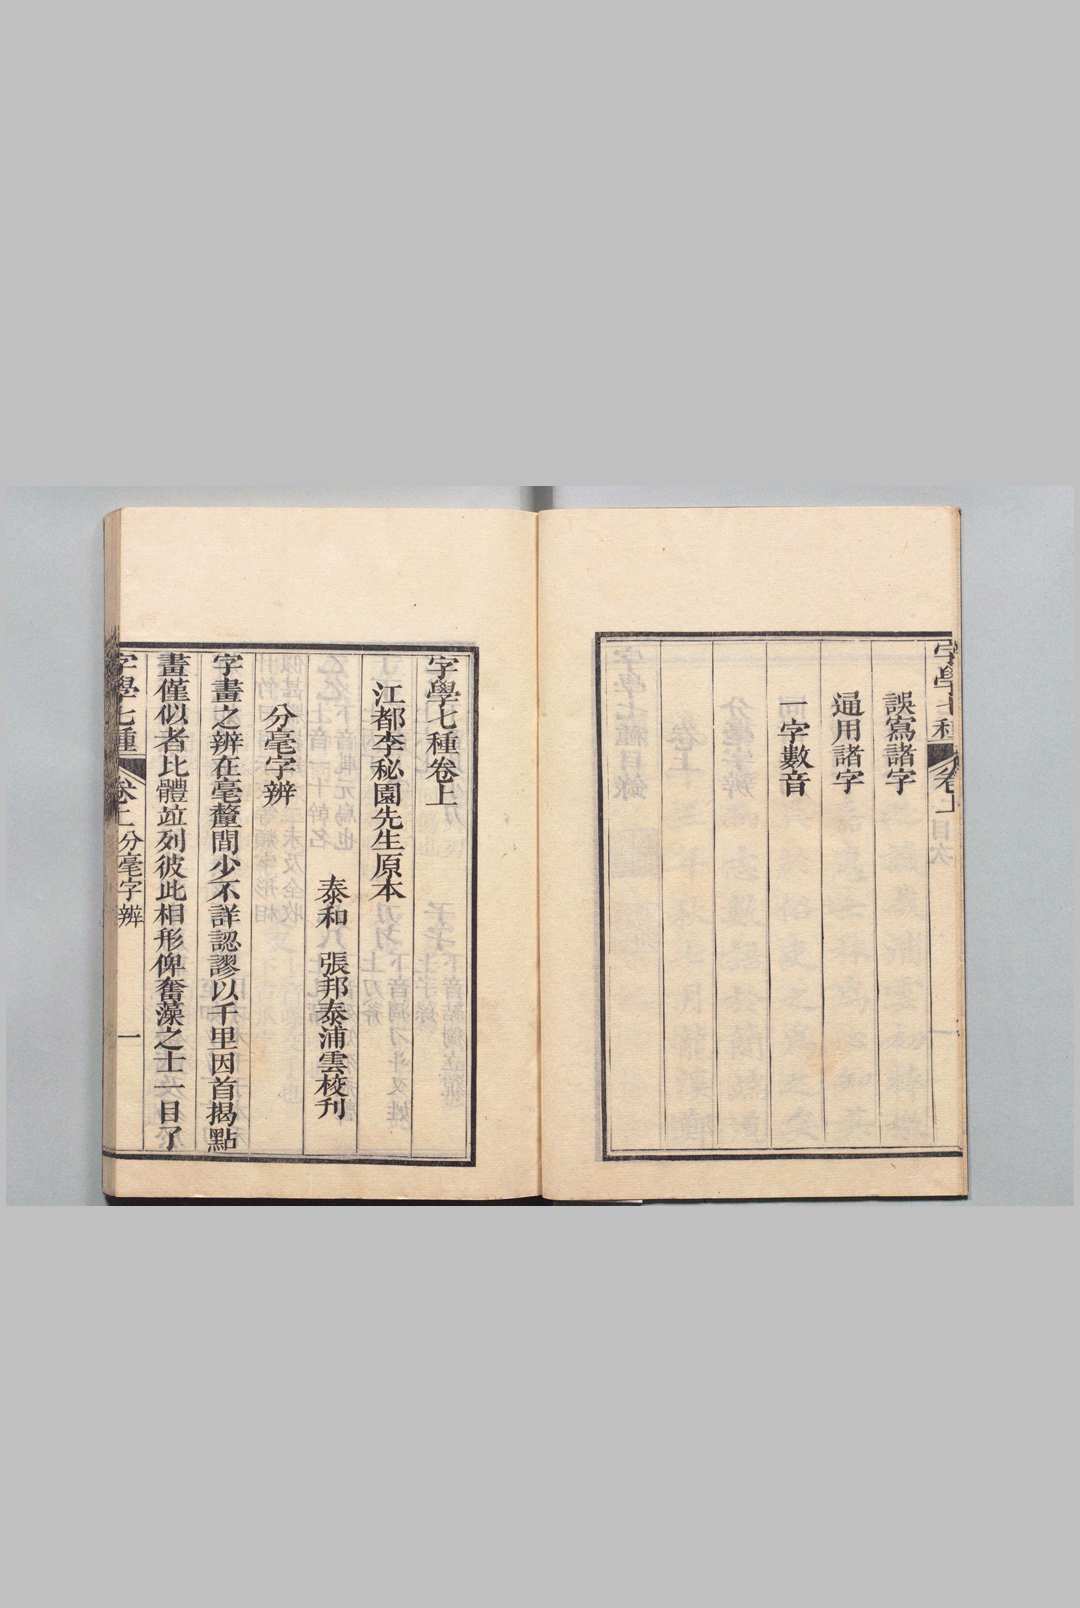 誤寫諸字
通用諸字
一字數音
字學七種卷上
江都李秘園先生原本
泰和 張邦泰浦雲校刊
分毫字辨
字畫之辨在毫釐間少不詳認謬以千里因首揭點
畫僅似者比體竝列彼此相形俾奮藻之士一目了
字學七種 卷上 分毫字辨 一